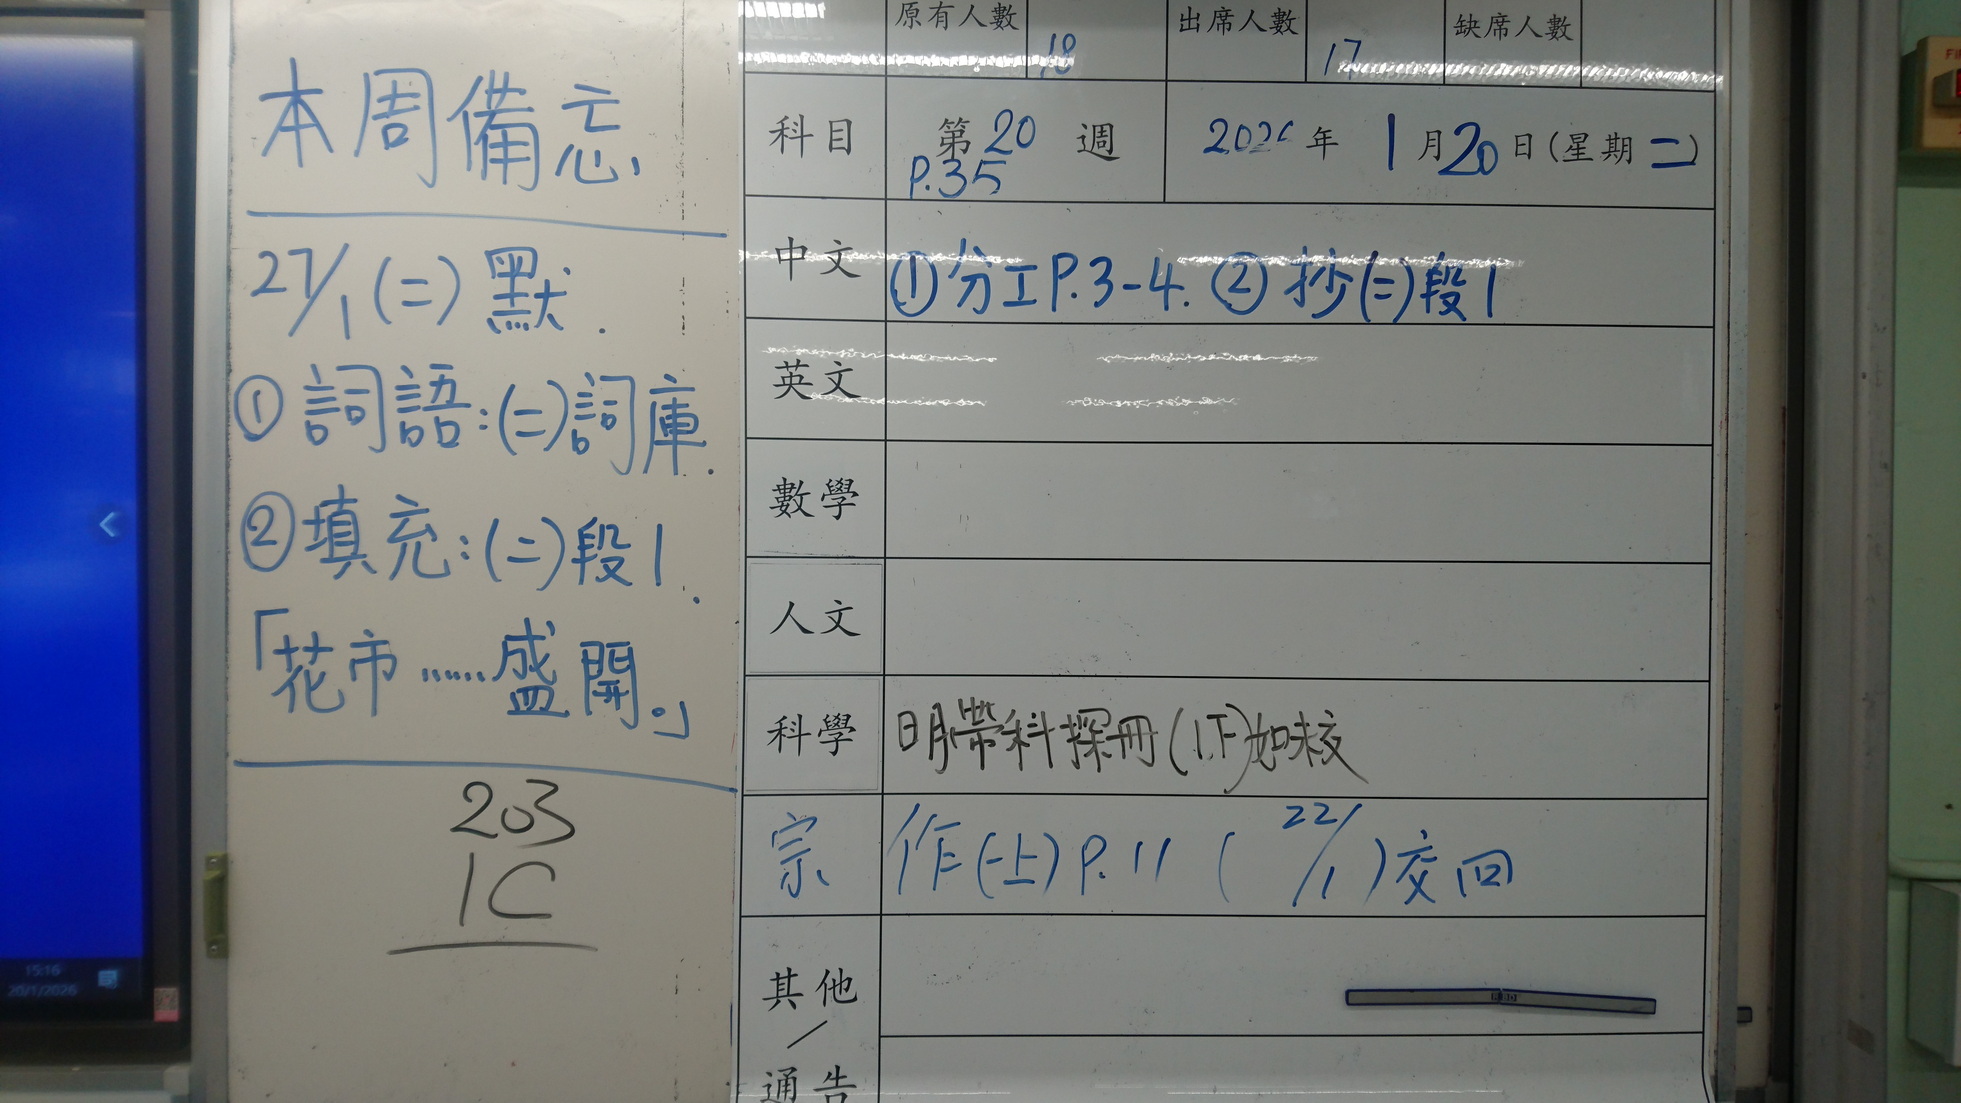 本周備忘
27/1(二)默.
①詞語:(二)詞庫.
②填充:(二)段1.
「花市……盛開。」
203
1C
原有人數 18 出席人數 17 缺席人數
科目 第20週 2026年1月20日(星期二)
P.35
中文 ①分工P.3-4. ②抄(二)段1
英文
數學
人文
科學 明帶科探冊(1下)如未交
宗 作(一上)P.11 (22/1)交回
其他
/
通告
15:16
20/1/2026